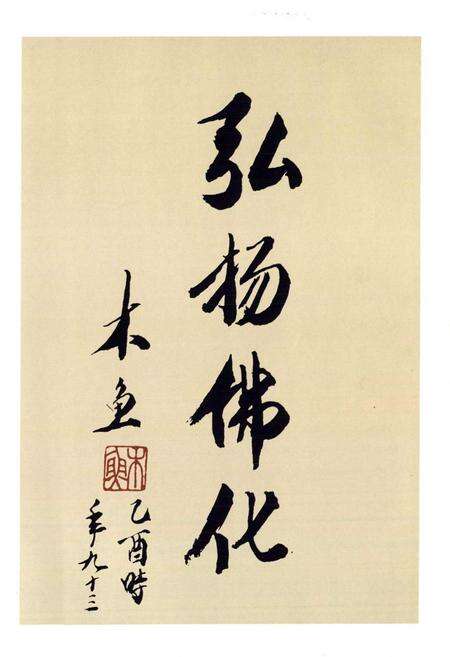 弘扬佛化
木鱼
木魚
乙酉時
年九十三